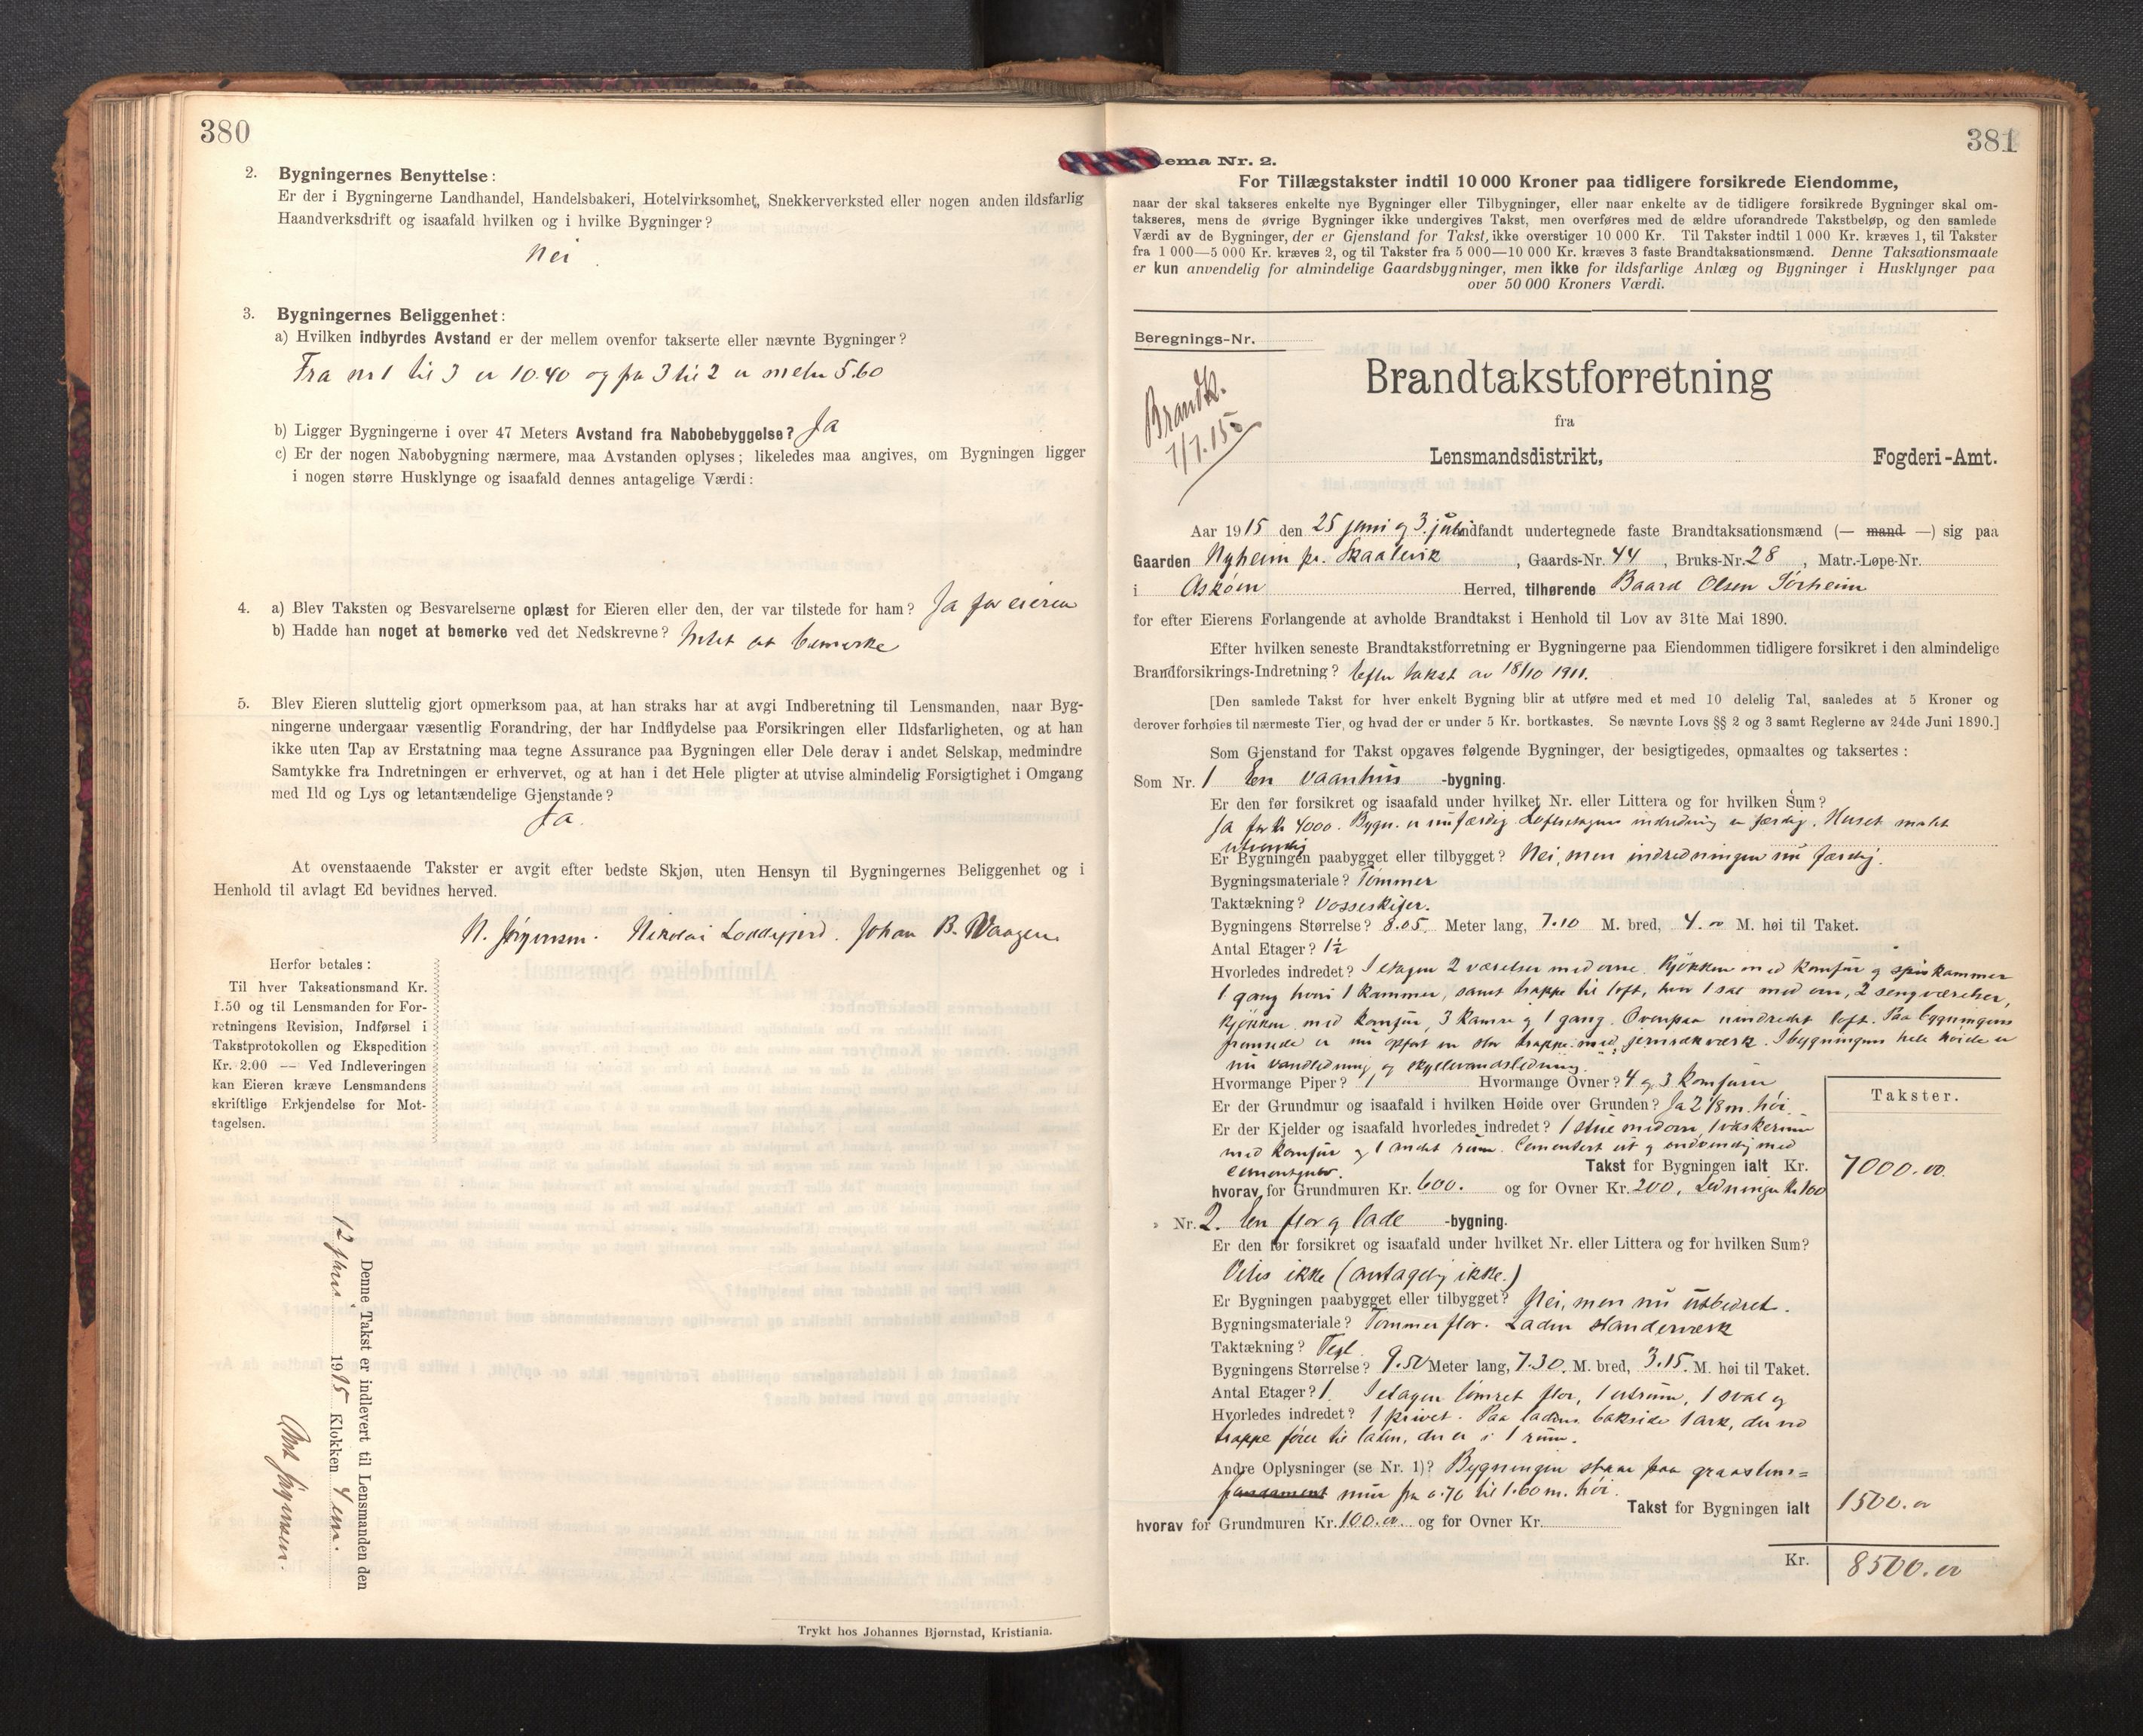 380
2. Bygningernes Benyttelse:
Er der i Bygningerne Landhandel, Handelsbakeri, Hotelvirksomhet, Snekkerverksted eller nogen anden ildsfarlig
Haandverksdrift og isaafald hvilken og i hvilke Bygninger?
Nei
3. Bygningernes Beliggenhet:
a) Hvilken indbyrdes Avstand er der mellem ovenfor takserte eller nævnte Bygninger?
Fra nr 1 til 3 er 10.40 og fra 3 til 2 er meter 5.60
b) Ligger Bygningerne i over 47 Meters Avstand fra Nabobebyggelse? Ja
c) Er der nogen Nabobygning nærmere, maa Avstanden oplyses; likeledes maa angives, om Bygningen ligger
i nogen større Husklynge og isaafald dennes antagelige Værdi:
4. a) Blev Taksten og Besvarelserne oplæst for Eieren eller den, der var tilstede for ham? Ja for eieren
b) Hadde han noget at bemerke ved det Nedskrevne? Intet at bemerke
5. Blev Eieren sluttelig gjort opmerksom paa, at han straks har at avgi Indberetning til Lensmanden, naar Byg-
ningerne undergaar væsentlig Forandring, der har Indflydelse paa Forsikringen eller Ildsfarligheten, og at han
ikke uten Tap av Erstatning maa tegne Assurance paa Bygningen eller Dele derav i andet Selskap, medmindre
Samtykke fra Indretningen er erhvervet, og at han i det Hele pligter at utvise almindelig Forsigtighet i Omgang
med Ild og Lys og letantændelige Gjenstande?
Ja.
At ovenstaaende Takster er avgit efter bedste Skjøn, uten Hensyn til Bygningernes Beliggenhet og i
Henhold til avlagt Ed bevidnes herved.
N. Jørgensen. Nikolai Loddegjerd. Johan B. Waagen
Herfor betales:
Til hver Taksationsmand Kr.
1.50 og til Lensmanden for For-
retningens Revision, Indførsel i
Takstprotokollen og Ekspedition
Kr. 2.00 — Ved Indleveringen
kan Eieren kræve Lensmandens
skriftlige Erkjendelse for Mot-
tagelsen.
Denne Takst er indlevert til Lensmanden den
12 1915 Klokken 4 em.
Jørgensen
Trykt hos Johannes Bjørnstad, Kristiania.
381
ema Nr. 2.
For Tillægstakster indtil 10 000 Kroner paa tidligere forsikrede Eiendomme,
naar der skal takseres enkelte nye Bygninger eller Tilbygninger, eller naar enkelte av de tidligere forsikrede Bygninger skal om-
takseres, mens de øvrige Bygninger ikke undergives Takst, men overføres med de ældre uforandrede Takstbeløp, og den samlede
Værdi av de Bygninger, der er Gjenstand for Takst, ikke overstiger 10 000 Kr. Til Takster indtil 1 000 Kr. kræves 1, til Takster
fra 1 000—5 000 Kr. kræves 2, og til Takster fra 5 000—10 000 Kr. kræves 3 faste Brandtaksationsmænd. Denne Taksationsmaate
er kun anvendelig for almindelige Gaardsbygninger, men ikke for ildsfarlige Anlæg og Bygninger i Husklynger paa
over 50 000 Kroners Værdi.
Beregnings-Nr.
Brandk.
7/7.15
Brandtakstforretning
fra
Lensmandsdistrikt, Fogderi-Amt.
Aar 1915 den 25 juni og 3. juli indfandt undertegnede faste Brandtaksationsmænd (— mand —) sig paa
Gaarden Nyheim pr. Skaalevik, Gaards-Nr. 44, Bruks-Nr. 28, Matr.-Løpe-Nr.
i Askøen Herred, tilhørende Baard Olsen Sørheim
for efter Eierens Forlangende at avholde Brandtakst i Henhold til Lov av 31te Mai 1890.
Efter hvilken seneste Brandtakstforretning er Bygningerne paa Eiendommen tidligere forsikret i den almindelige
Brandforsikrings-Indretning? Efter takst av 18/10 1911.
[Den samlede Takst for hver enkelt Bygning blir at utføre med et med 10 delelig Tal, saaledes at 5 Kroner og
derover forhøies til nærmeste Tier, og hvad der er under 5 Kr. bortkastes. Se nævnte Lovs §§ 2 og 3 samt Reglerne av 24de Juni 1890.]
Som Gjenstand for Takst opgaves følgende Bygninger, der besigtigedes, opmaaltes og taksertes:
Som Nr. 1 En vaanhus -bygning.
Er den før forsikret og isaafald under hvilket Nr. eller Littera og for hvilken Sum?
Ja for Kr 4000. Bygn. er nu færdig. Loftsetagens indredning er færdig. Huset malt
utvendig
Er Bygningen paabygget eller tilbygget? Nei, men indredningen nu færdig.
Bygningsmateriale? Tømmer
Taktækning? Vosseskifer.
Bygningens Størrelse? 8.05 Meter lang, 7.10 M. bred, 4.00 M. høi til Taket.
Antal Etager? 1½
Hvorledes indredet? I etagen 2 værelser med ovne. Kjøkken med komfur og spiskammer
1 gang hvori 1 kammer, samt trappe til loft, hvor 1 sal med ovn, 2 sengværelser,
kjøkken med komfur, 3 kamre og 1 gang. Ovenpaa uindredet loft. Paa bygningens
fremside er nu opført en stor trappe med jernrækværk. I bygningens hele høide er
nu vandledning og skyllevandsledning.
Hvormange Piper? 1 Hvormange Ovner? 4 og 3 komfurer
Er der Grundmur og isaafald i hvilken Høide over Grunden? Ja 2.18 m. høi.
Er der Kjelder og isaafald hvorledes indredet? 1 stue med ovn, 1 vaskerum
med komfur og 1 andet rum. Cementert ut og indvendig med
cementgulv.
Takst for Bygningen ialt Kr.
Takster.
7000.00
hvorav for Grundmuren Kr. 600. og for Ovner Kr. 200, Ledninger Kr 100
Nr. 2. En flor og lade -bygning.
Er den før forsikret og isaafald under hvilket Nr. eller Littera og for hvilken Sum?
Vites ikke (antagelig ikke.)
Er Bygningen paabygget eller tilbygget? Nei, men nu utbedret.
Bygningsmateriale? Tømmerflor. Laden standerverk
Taktækning? Tegl
Bygningens Størrelse? 9.50 Meter lang, 7.30. M. bred, 3.15. M. høi til Taket.
Antal Etager? 1. I etagen tømret flor, 1 utrum, 1 sval og
Hvorledes indredet? 1 privet. Paa ladens bakside 1 ark, der
trappe fører til laden, der er i 1 rum.
Andre Oplysninger (se Nr. 1)? Bygningen staar paa graastens=
fundament mur fra 0.70 til 1.60 m. høi.
Takst for Bygningen ialt 1500.00
hvorav for Grundmuren Kr. 100.00 og for Ovner Kr.
Kr. 8500.00